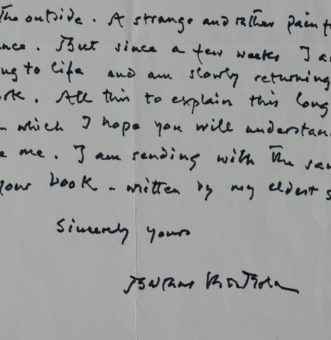 The outside. A strange and rather painf
ance. But since a few weeks I a
ng to life and am slowly returning
ork. All this to explain this long
n which I hope you will understan
e me. I am sending with the sam
your book - written by my eldest s
Sincerely yours